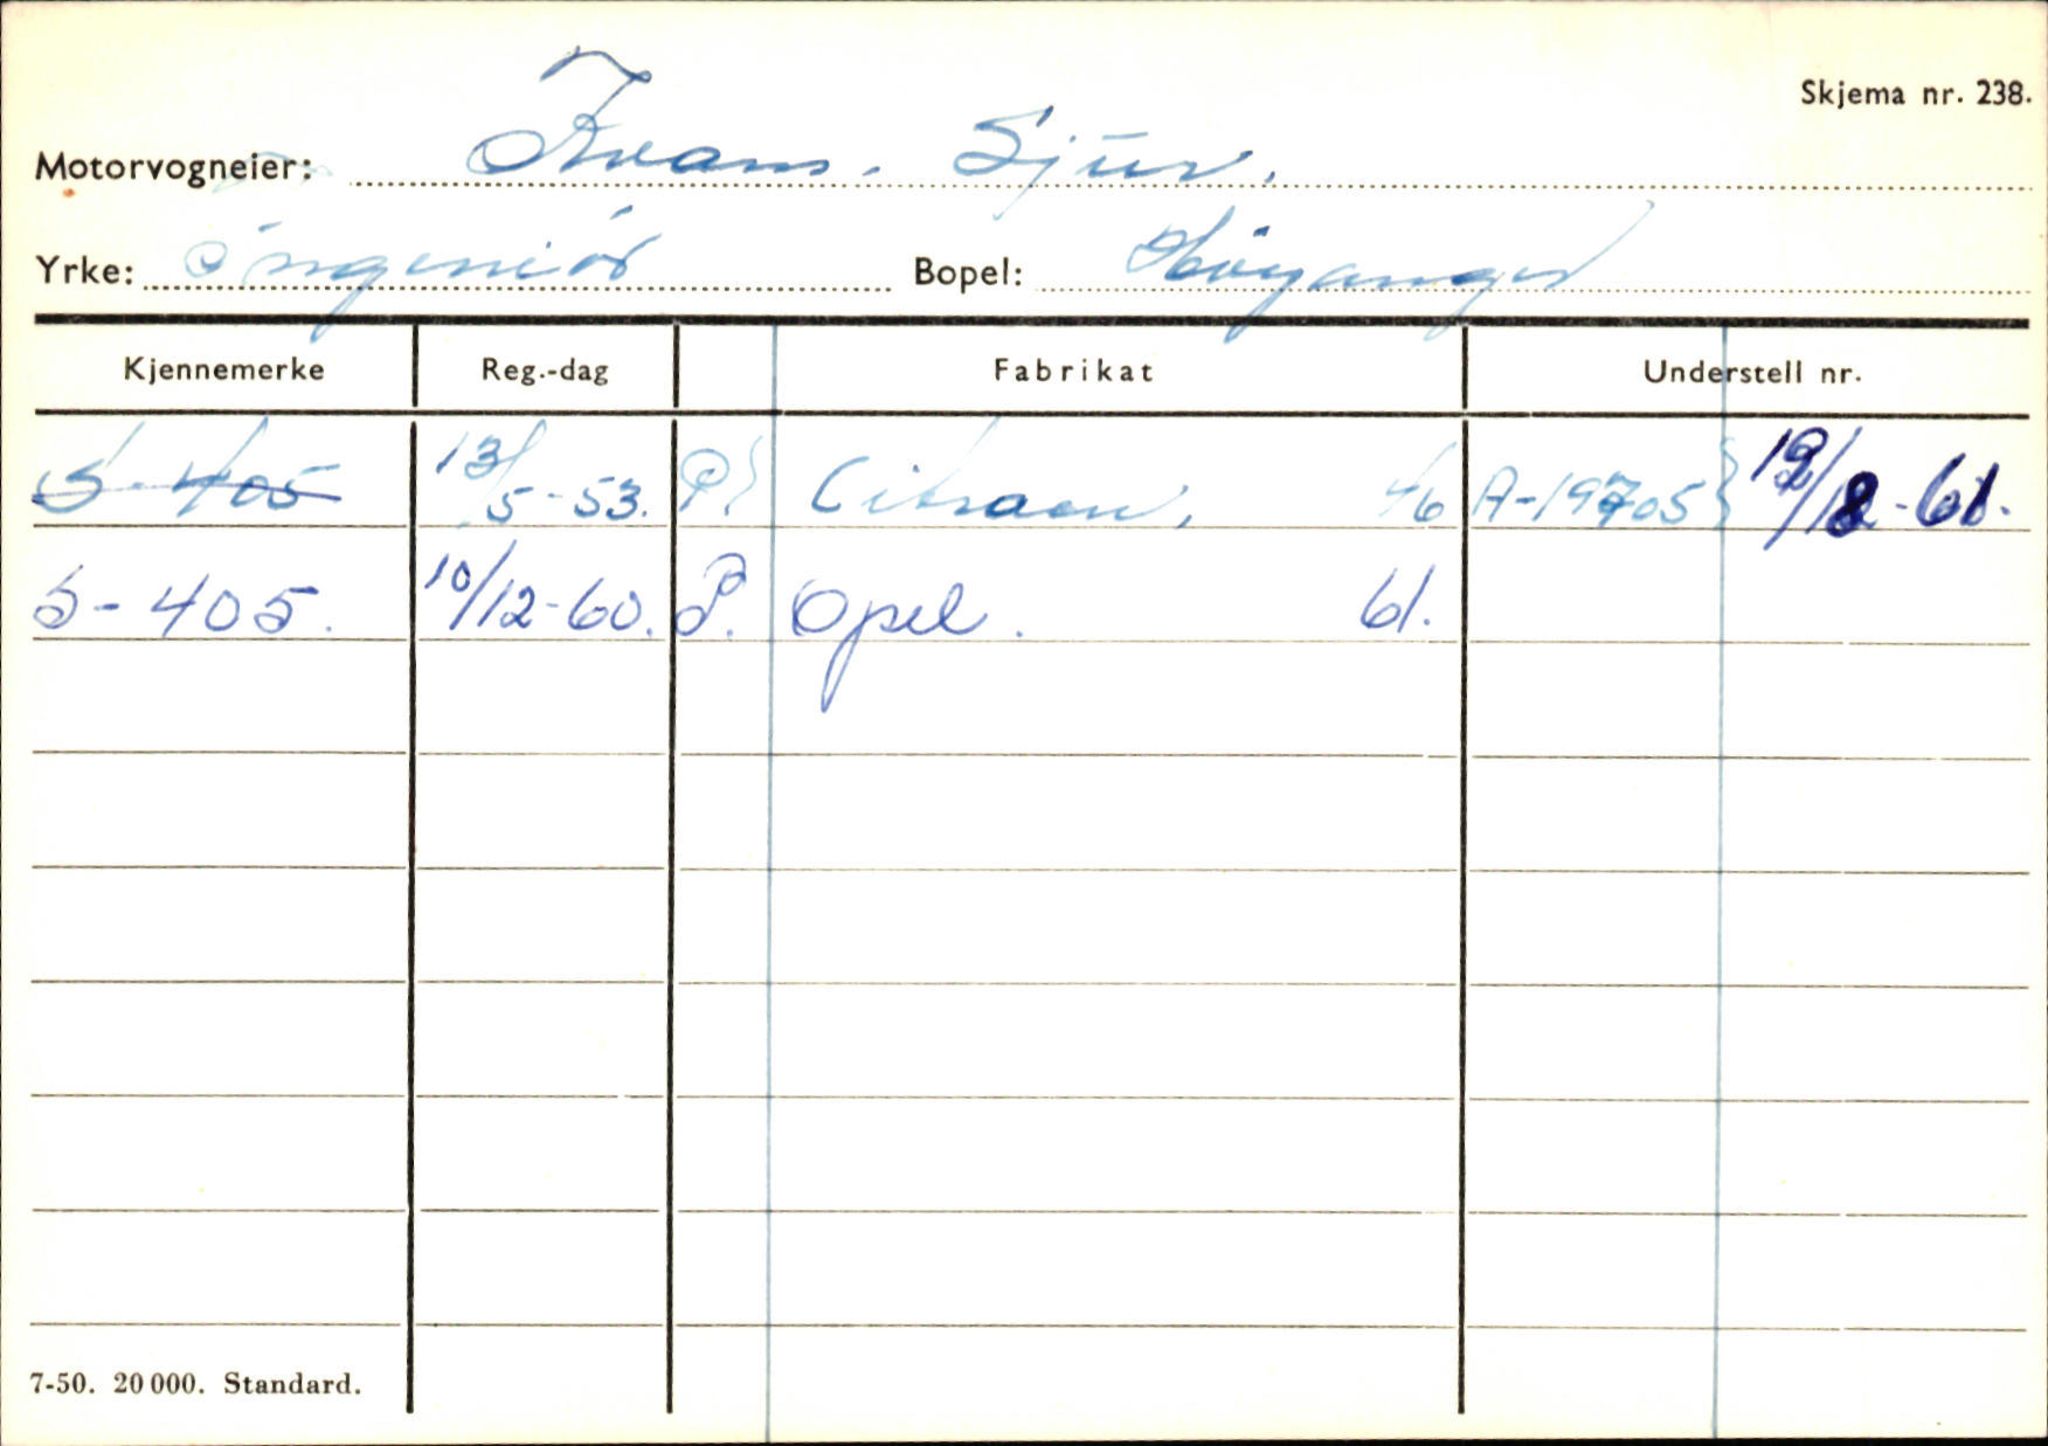 Skjema nr. 238.
Motorvogneier: Kvam. Sjur.
Yrke: Ingeniör Bopel: Höyanger
Kjennemerke Reg.-dag Fabrikat Understell nr.
S-405 13/5-53. P. Citroen. 46 A-19705 -61.
S-405. 10/12-60. P. Opel. 61.
7-50. 20 000. Standard.